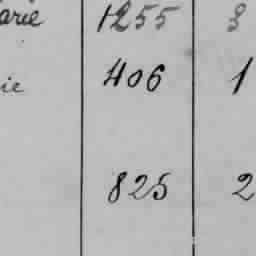 arie 1255 3
ie 406 1
825 2